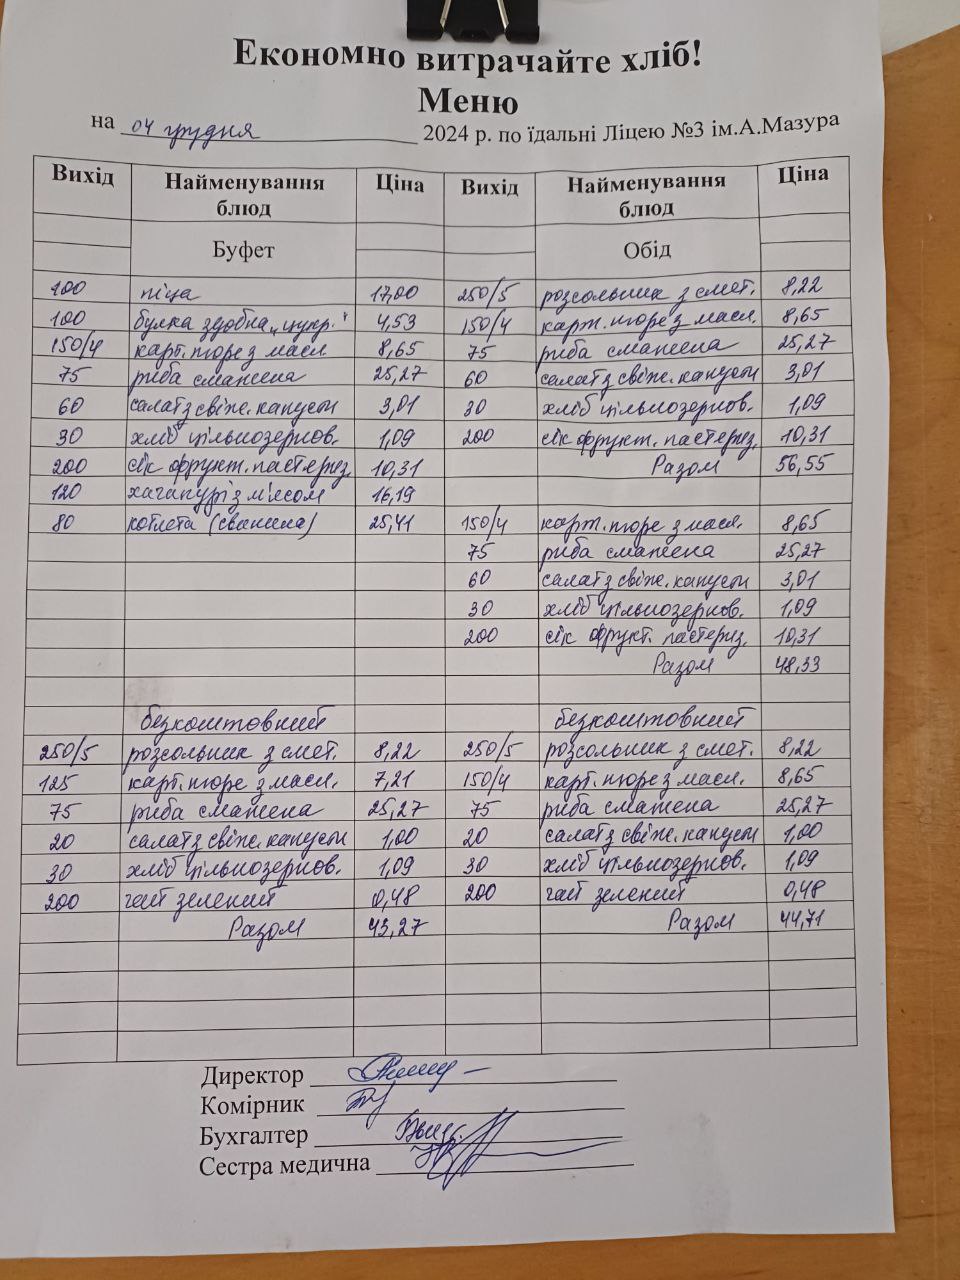 Економно витрачайте хліб!
Меню
на 04 грудня 2024 р. по їдальні Ліцею №3 ім.А.Мазура
Вихід Найменування блюд Ціна Вихід Найменування блюд Ціна
Буфет Обід
100 піца 17,00 250/5 розсольник з смет. 8,22
100 булка здобна „цукр." 4,53 150/4 карт. пюре з масл. 8,65
150/4 карт. пюре з масл 8,65 75 риба смажена 25,27
75 риба смажена 25,27 60 салат з свіж. капусти 3,01
60 салат з свіж. капусти 3,01 30 хліб цільнозернов. 1,09
30 хліб цільнозернов. 1,09 200 сік фрукт. пастериз. 10,31
200 сік фрукт. пастериз. 10,31 Разом 56,55
120 хачапурі з м'ясом 16,19
80 котлета (свинина) 25,41 150/4 карт. пюре з масл. 8,65
75 риба смажена 25,27
60 салат з свіж. капусти 3,01
30 хліб цільнозернов. 1,09
200 сік фрукт. пастериз. 10,31
Разом 48,33
безкоштовний безкоштовний
250/5 розсольник з смет. 8,22 250/5 розсольник з смет. 8,22
125 карт. пюре з масл. 7,21 150/4 карт. пюре з масл. 8,65
75 риба смажена 25,27 75 риба смажена 25,27
20 салат з свіж. капусти 1,00 20 салат з свіж. капусти 1,00
30 хліб цільнозернов. 1,09 30 хліб цільнозернов. 1,09
200 чай зелений 0,48 200 чай зелений 0,48
Разом 43,27 Разом 44,71
Директор
Комірник
Бухгалтер
Сестра медична